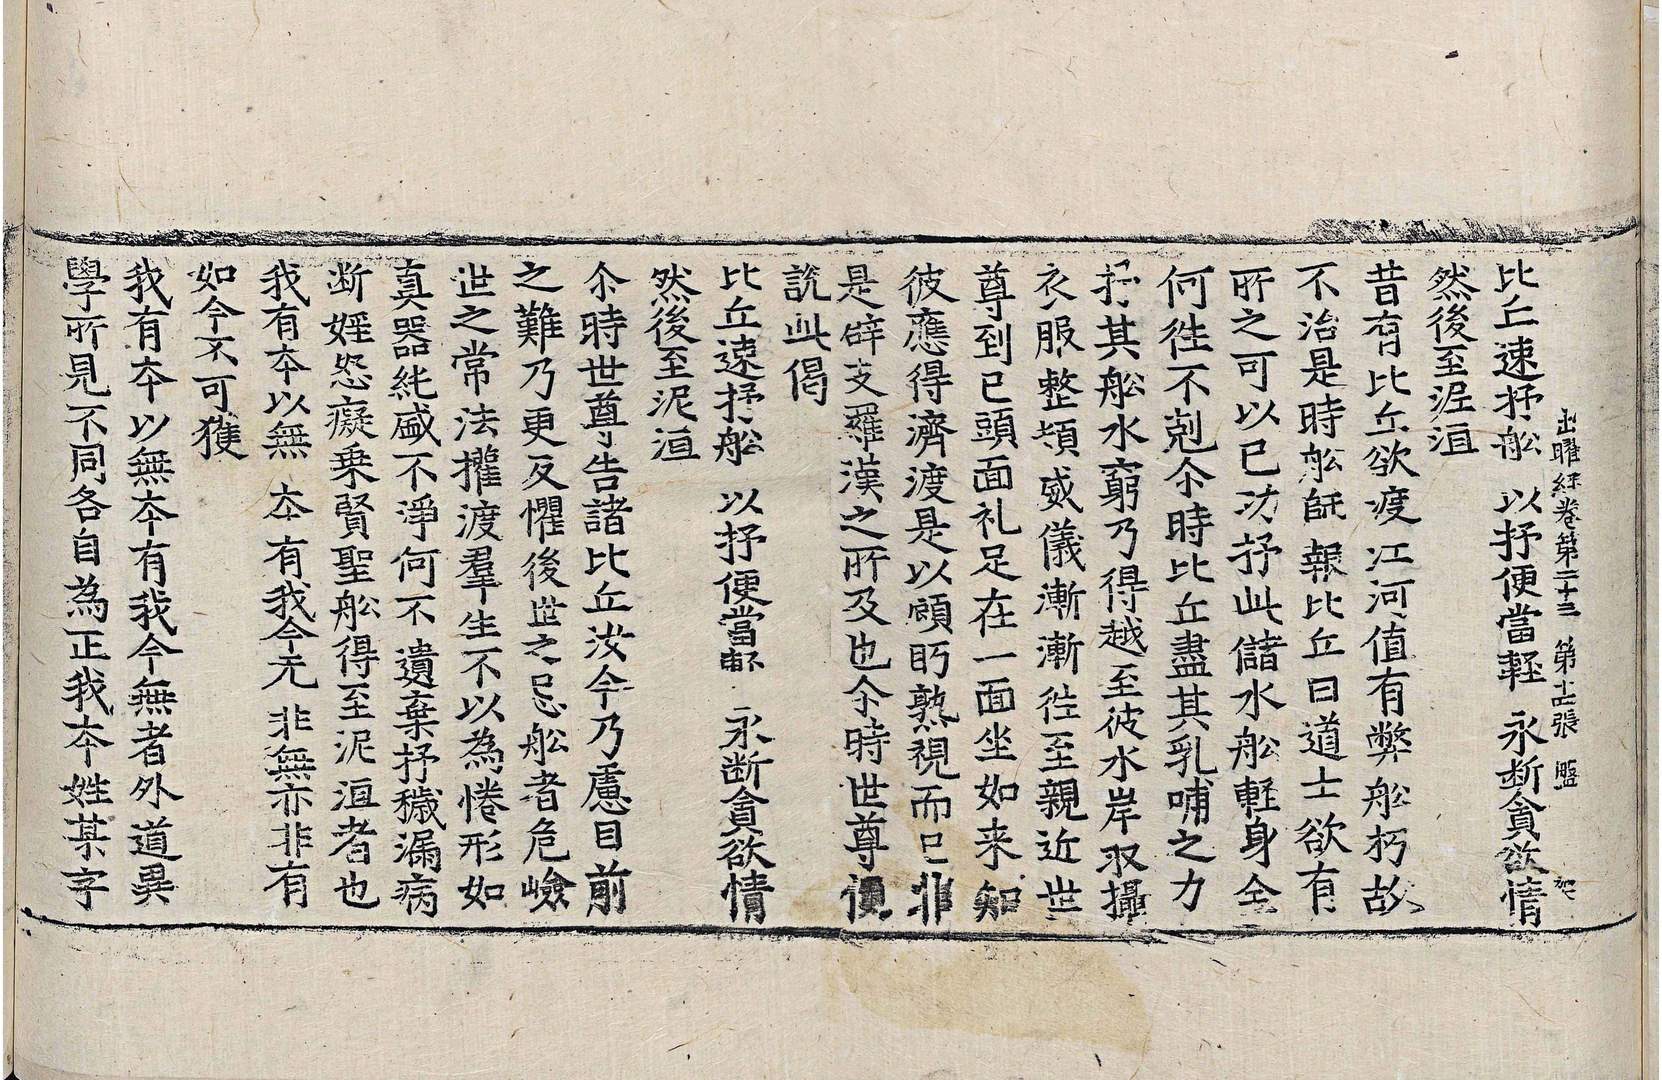 出曜経卷第二十三 第十七張 盤
比丘速抒舩 以抒便當軽 永断貪欲情
然後至泥洹
昔有比丘欲渡江河值有弊舩朽故
不治是時舩師報比丘曰道士欲有
所之可以已功抒此儲水舩軽身全
何徃不剋尒時比丘盡其乳哺之力
抒其舩水窮乃得越至彼水岸収攝
衣服整頓威儀漸漸徃至親近世
尊到已頭面礼足在一面坐如来知
彼應得濟渡是以顧眄熟視而已非
是辟支羅漢之所及也尒時世尊便
説此偈
比丘速抒舩 以抒便當軽 永断貪欲情
然後至泥洹
尒時世尊告諸比丘汝今乃慮目前
之難乃更反懼後世之忌舩者危嶮
世之常法擢渡羣生不以為惓形如
真器純盛不淨何不遺棄抒穢漏病
断婬怒癡乗賢聖舩得至泥洹者也
我有夲以無 夲有我今无 非無亦非有
如今不可獲
我有夲以無夲有我今無者外道異
學所見不同各自為正我夲姓某字